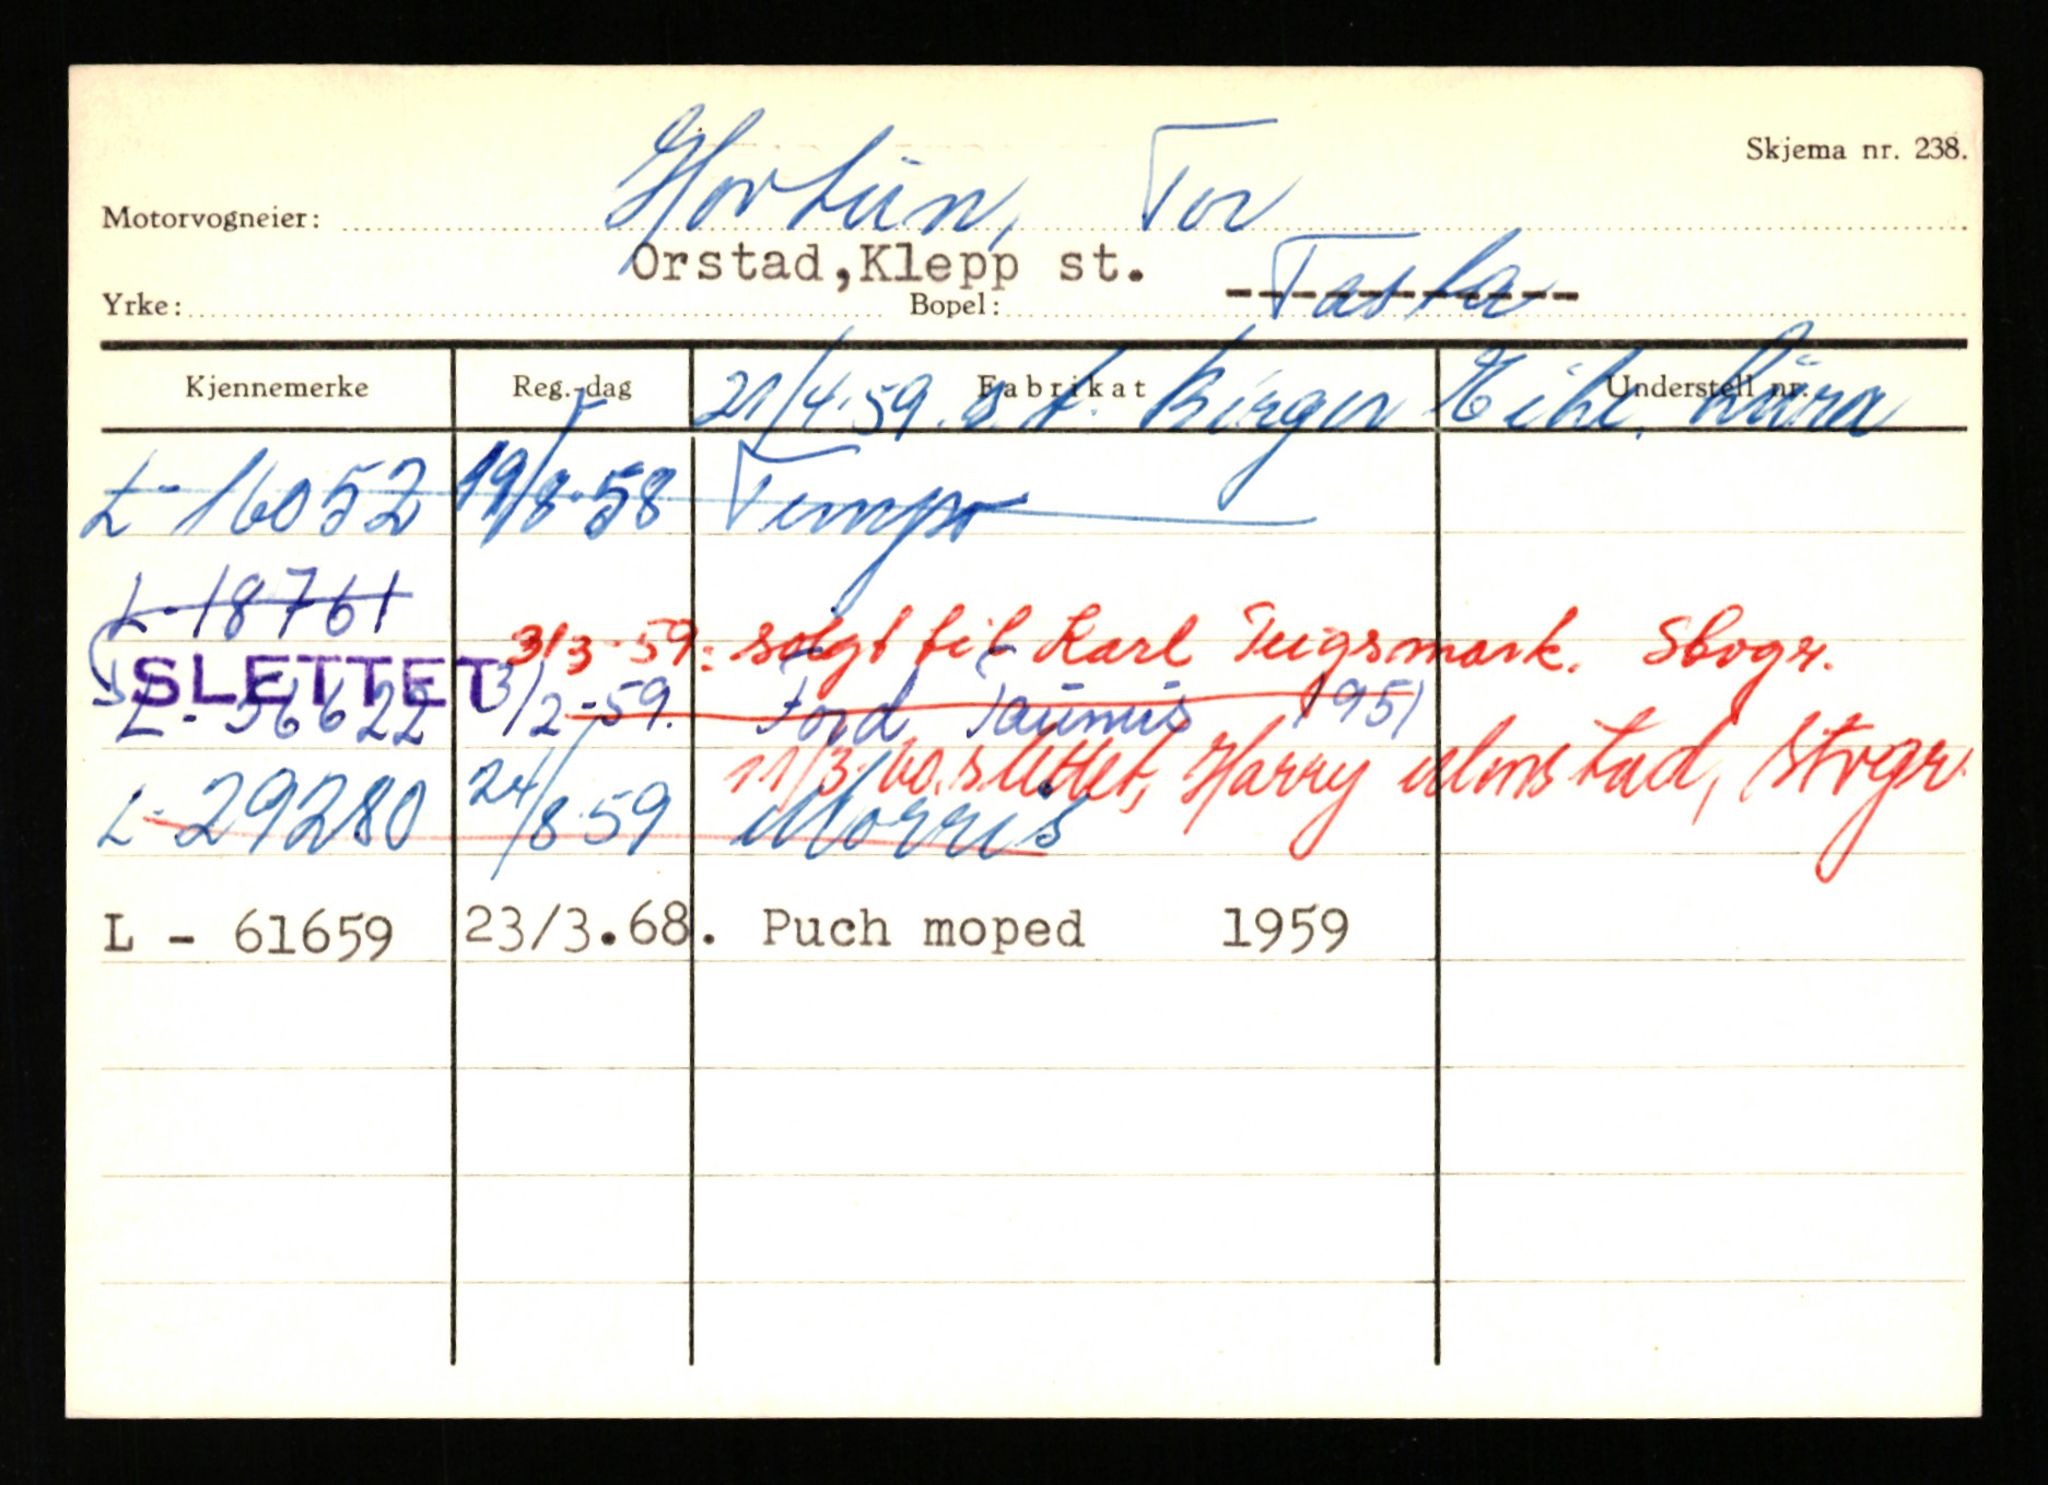 Skjema nr. 238.
Motorvogneier: Hortun, Tor
Orstad,Klepp st. Tasta
Yrke: Bopel:
Kjennemerke Reg.-dag Fabrikat Understell nr.
21/4-59. s.t. Birger Lura
L-16052 19/8-58 Tempo
L-18761
3/3-59: solgt til Karl Teigsmark. Stvgr.
SLETTET
L-56622 3/2-59. Ford Taunus 1951
11/3-60. slettet, Harry Almstad, Stvgr.
L-29280 24/8-59 Morris
L - 61659 23/3.68. Puch moped 1959